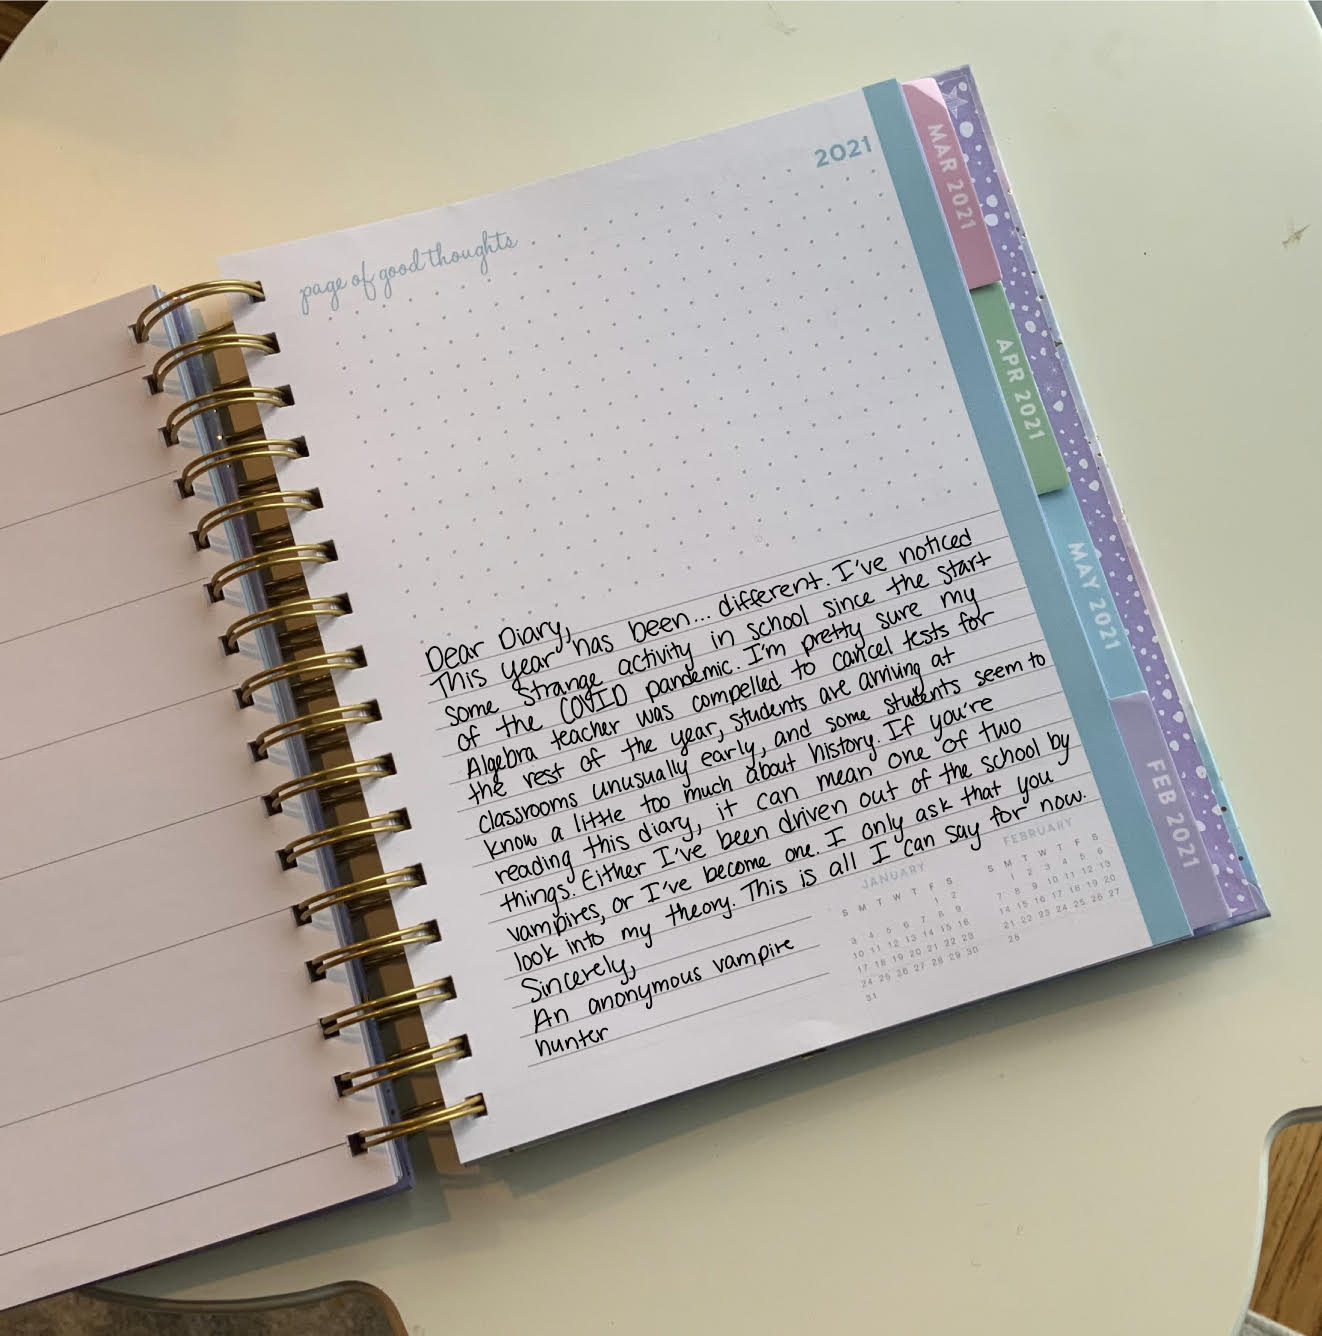 2021
page of good thoughts
Dear Diary,
This year has been... different. I've noticed
some strange activity in school since the start
of the COVID pandemic. I'm pretty sure my
Algebra teacher was compelled to cancel tests for
the rest of the year, students are arriving at
classrooms unusually early, and some students seem to
know a little too much about history. If you're
reading this diary, it can mean one of two
things: Either I've been driven out of the school by
vampires, or I've become one. I only ask that you
look into my theory. This is all I can say for now.
Sincerely,
An anonymous vampire
hunter
JANUARY
S M T W T F S
1 2
3 4 5 6 7 8 9
10 11 12 13 14 15 16
17 18 19 20 21 22 23
24 25 26 27 28 29 30
31
FEBRUARY
S M T W T F S
1 2 3 4 5 6
7 8 9 10 11 12 13
14 15 16 17 18 19 20
21 22 23 24 25 26 27
28
MAR 2021
APR 2021
MAY 2021
FEB 2021